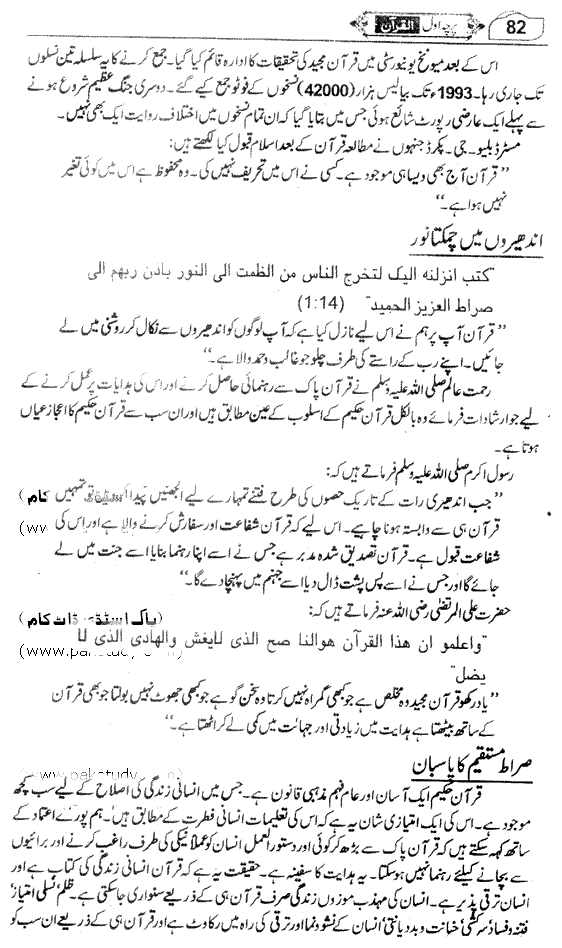 82 پرچہ اول القرآن
اس کے بعد میونخ یونیورسٹی میں قرآن مجید کی تحقیقات کا ادارہ قائم کیا گیا۔ جمع کرنے کا یہ سلسلہ تین نسلوں
تک جاری رہا۔ 1993ء تک بیالیس ہزار (42000) نسخوں کے فوٹو جمع کیے گئے۔ دوسری جنگ عظیم شروع ہونے
سے پہلے ایک عارضی رپورٹ شائع ہوئی جس میں بتایا گیا کہ ان تمام نسخوں میں اختلاف روایت ایک بھی نہیں۔
مسٹر ڈبلیو۔ جی۔ پکرڈ جنہوں نے مطالعہ قرآن کے بعد اسلام قبول کیا لکھتے ہیں:
’’قرآن آج بھی ویسا ہی موجود ہے۔ کسی نے اس میں تحریف نہیں کی۔ وہ محفوظ ہے اس میں کوئی تغیر
نہیں ہوا ہے۔‘‘
اندھیروں میں چمکتا نور
"کتب انزلنه الیك لتخرج الناس من الظمت الی النور باذن ربهم الی
صراط العزیز الحمید" (1:14)
’’قرآن آپ پر ہم نے اس لیے نازل کیا ہے کہ آپ لوگوں کو اندھیروں سے نکال کر روشنی میں لے
جائیں۔ اپنے رب کے راستے کی طرف چلو جو غالب و حمد والا ہے۔‘‘
رحمت عالم صلی اللہ علیہ وسلم نے قرآن پاک سے رہنمائی حاصل کرنے اور اس کی ہدایات پر عمل کرنے کے
لیے جو ارشادات فرمائے وہ بالکل قرآن حکیم کے اسلوب کے عین مطابق ہیں اور ان سب سے قرآن حکیم کا اعجاز عیاں
ہوتا ہے۔
رسول اکرم صلی اللہ علیہ وسلم فرماتے ہیں کہ:
’’جب اندھیری رات کے تاریک حصوں کی طرح فتنے تمہارے لیے الجھنیں پیدا تو تمہیں کام)
قرآن ہی سے وابستہ ہونا چاہیے۔ اس لیے کہ قرآن شفاعت اور سفارش کرنے والا ہے اور اس کی (ww
شفاعت قبول ہے۔ قرآن تصدیق شدہ مدبر ہے جس نے اسے اپنا رہنما بنایا اسے جنت میں لے
جائے گا اور جس نے اسے پس پشت ڈال دیا اسے جہنم میں پہنچا دے گا۔‘‘
حضرت علی المرتضیٰ رضی اللہ عنہ فرماتے ہیں کہ: (پاک اسٹڈی ڈاٹ کام)
"واعلمو ان هذا القرآن هوالنا صح الذی لا یغش والهادی الذی لا
یضل" (www.pakstudy.com)
’’یاد رکھو قرآن مجید وہ مخلص ہے جو کبھی گمراہ نہیں کرتا وہ سخن گو ہے جو کبھی جھوٹ نہیں بولتا جو بھی قرآن
کے ساتھ بیٹھتا ہے ہدایت میں زیادتی اور جہالت میں کمی لے کر اٹھتا ہے۔‘‘
صراط مستقیم کا پاسبان
قرآن حکیم ایک آسان اور عام فہم مذہبی قانون ہے۔ جس میں انسانی زندگی کی اصلاح کے لیے سب کچھ
موجود ہے۔ اس کی ایک امتیازی شان یہ ہے کہ اس کی تعلیمات انسانی فطرت کے مطابق ہیں۔ ہم پورے اعتماد کے
ساتھ کہہ سکتے ہیں کہ قرآن پاک سے بڑھ کر کوئی اور دستور العمل انسان کو عملاً نیکی کی طرف راغب کرنے اور برائیوں
سے بچانے کیلئے رہنما نہیں ہو سکتا۔ یہ ہدایت کا سفینہ ہے۔ حقیقت یہ ہے کہ قرآن انسانی زندگی کی کتاب ہے اور
انسان ترقی پذیر ہے۔ انسان کی مہذب موزوں زندگی صرف قرآن ہی کے ذریعے سنواری جا سکتی ہے۔ ظلم، نسلی امتیاز،
فتنہ و فساد، سرکشی، خیانت و بد دیانتی، انسان کے نشوونما اور ترقی کی راہ میں رکاوٹ ہے اور قرآن ہی کے ذریعے ان سب کو